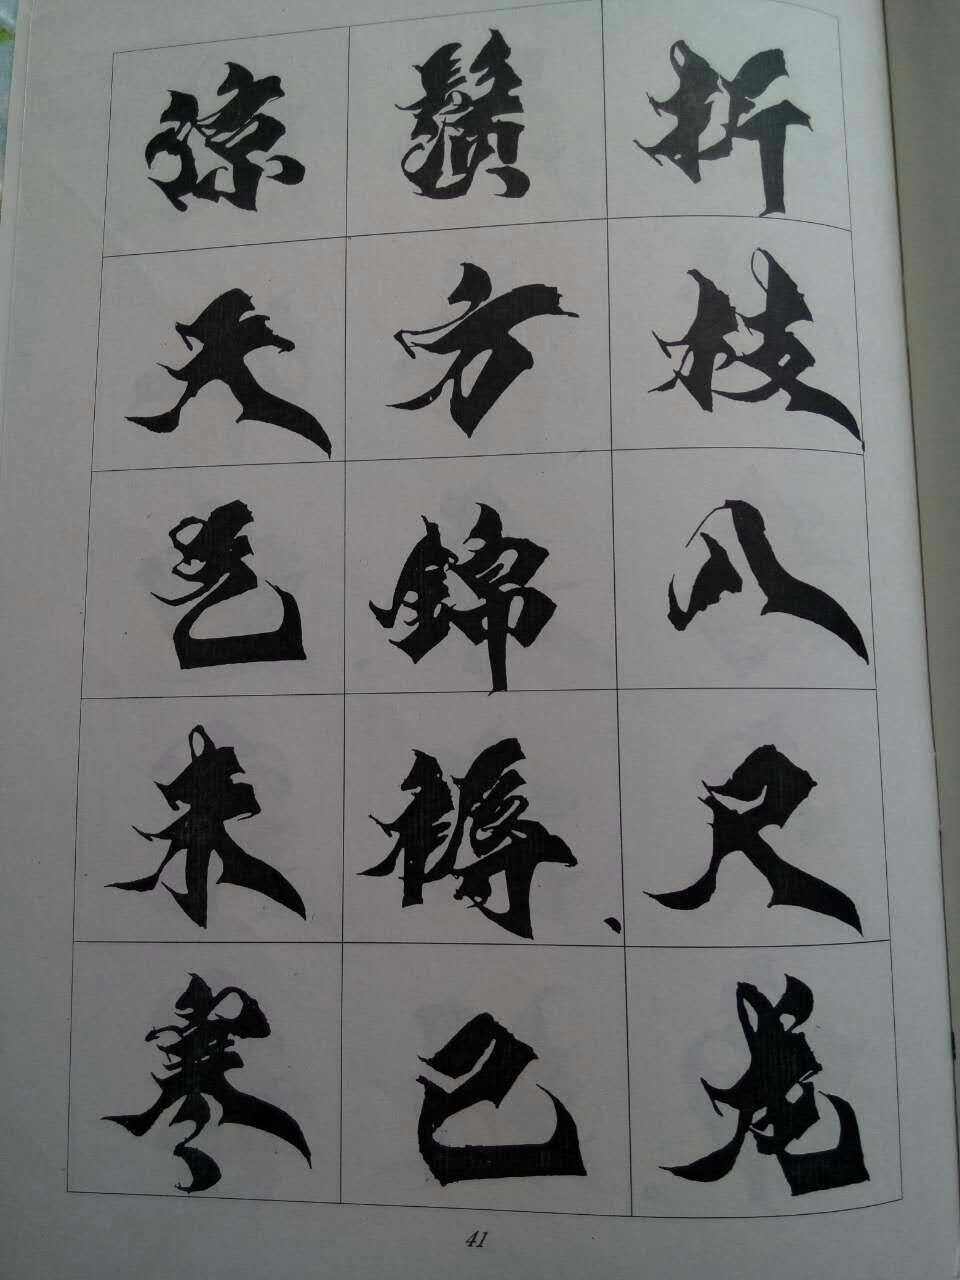 折枝八尺龙
鬚方錦褥已
涼天气未寒
41